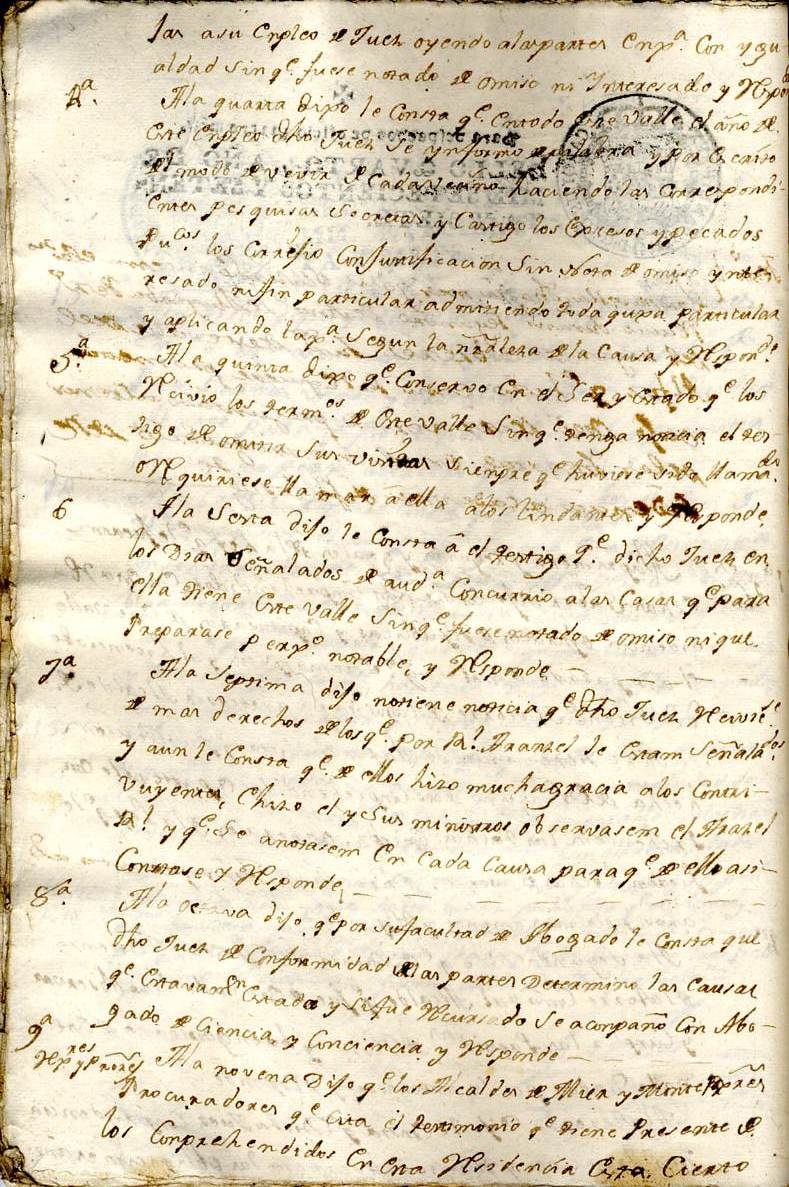 las asu Enpleo de Juez oyendo alas partes En pa. Con ygu-
aldad sin qe. fuese notado de omiso ni Interesado y Respde.
4a. Ala quarta dixo le Consta qe. En todo Este Valle el año de
Este Enpleo dho Juez se ynformo de palabra y por Escrito
el modo de vivir de Cada vecino haciendo las Correspondi-
Entes pesquisas Secretas, y Castigo los Excesos y pecados
pucos los Corrijio Con Justificacion sin Nota de omiso ynte-
resado ni fin particular admitiendo toda quexa particular
y aplicando la pa. Segun la nraleza de la Causa y Respon.
5a. Ala quinta dixo qe. Conservo En el Ser y Estado qe. los
Recivio los termos. de Este Valle sin qe. tenga noticia el tes-
tigo de omitir sus visitas siempre qe. huviese sido llamado.
o Requiriese llamar a ella alos lindantes y Responde.
6 Ala Sexta dijo le Consta a el testigo qe. dicho Juez En
los Dias Señalados de auda. Concurrio alas Casas qe. para
Ella tiene Este Valle sin qe. fuese notado de omiso ni que
Preparase perxo. notable, y Responde
7a Ala Septima dijo no tiene noticia qe. dho Juez Reciviese
de mas derechos de los qe. por Rl. Aranzel le Estam Señalados.
y aun le Consta qe. de ellos hizo mucha gracia alos Contri-
vuyentes, E hizo el y sus ministros observasem el Aranzel
Rl. y qe. se anotasem En Cada Causa para qe. de ello asi
Constase y Responde,
8a. Ala octava dijo qe. por su facultad de Abogado le Consta que
dho Juez de Conformidad de las partes Determino las Causas
qe. Estavam En Estado y si fue Recursado Se aconpaño Con Abo-
gado de Ciencia, y Conciencia y Responde
9a Ala novena Dijo qe. los Alcaldes de Mier y Monte
Procuradores qe. Cita el testimonio qe. tiene Presente de
los Conprehendidos En Esta Residencia Esta Cierto